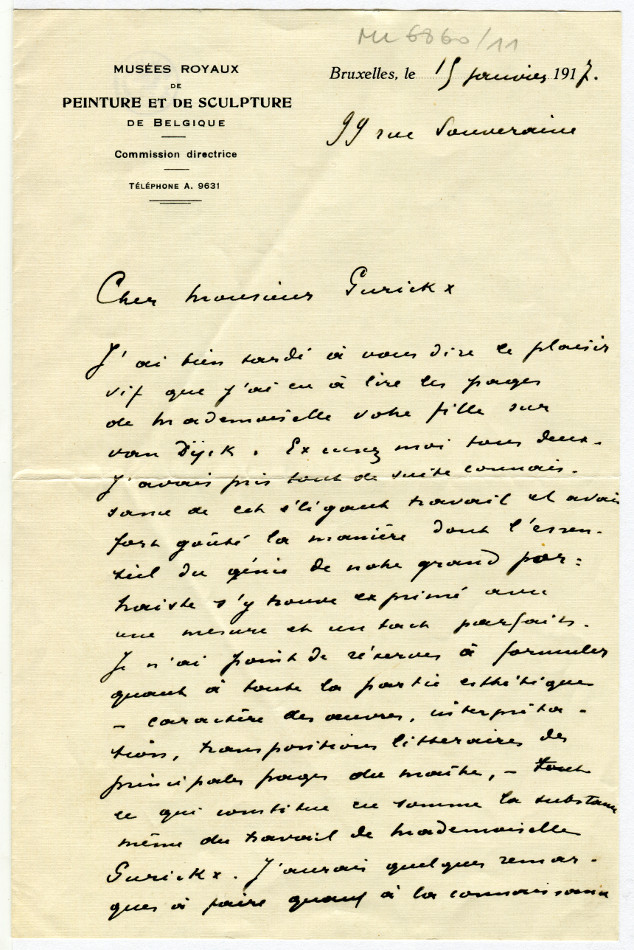 ML 6860/11
MUSÉES ROYAUX
DE
PEINTURE ET DE SCULPTURE
DE BELGIQUE
Commission directrice
TÉLÉPHONE A. 9631
Bruxelles, le 15 janvier 1917.
99 rue Souveraine
Cher Monsieur Gurickx
J'ai bien tardé à vous dire le plaisir
vif que j'ai eu à lire les pages
de Mademoiselle votre fille sur
van Dijck. Excusez moi tous deux.
J'avais pris tout de suite connais-
sance de cet élégant travail et avais
fort goûté la manière dont l'essen-
tiel du génie de notre grand por-
traitiste s'y trouve exprimé avec
une mesure et un tact parfaits.
Je n'ai point de réserves à formuler
quant à toute la partie esthétique
- caractère des œuvres, interpréta-
tion, transpositions littéraires des
principales pages du maître, - tout
ce qui constitue en somme la substance
même du travail de Mademoiselle
Gurickx. J'aurais quelques remar-
ques à faire quant à la connaissance